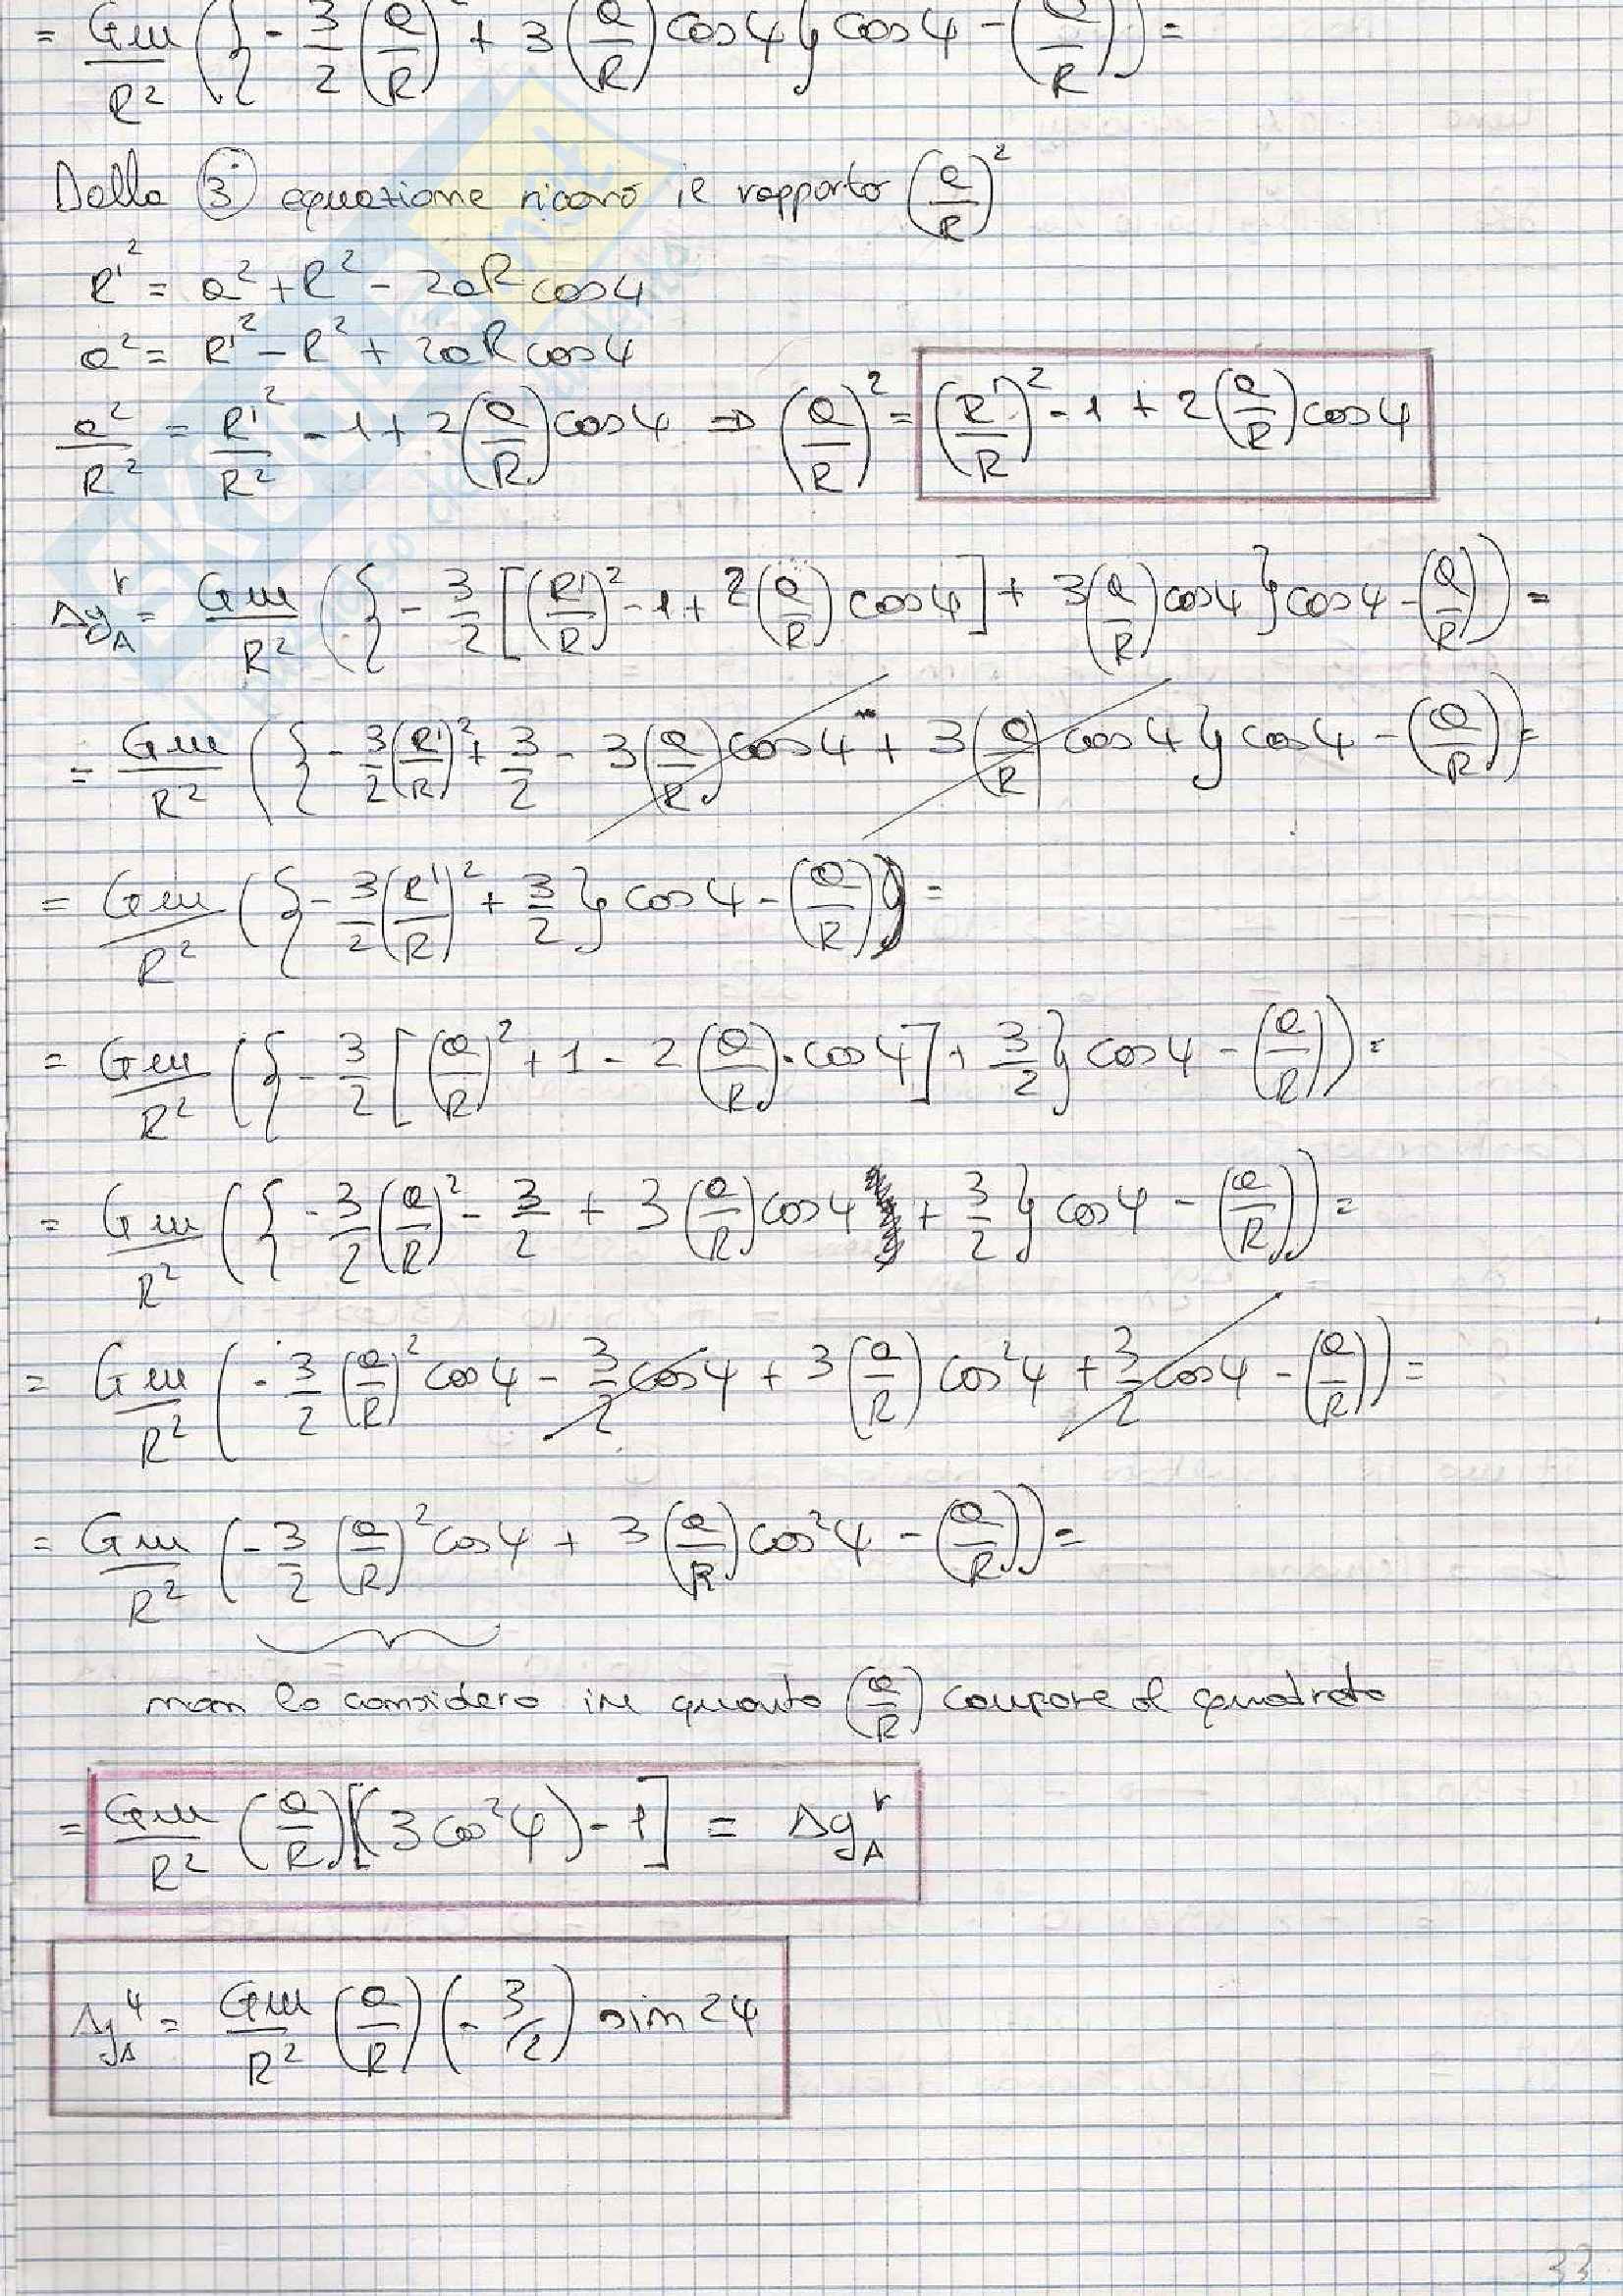 = Gm/R² ({ - 3/2 (a/R)² + 3 (a/R) cosψ} cosψ - (a/R)) =
Dalla 3° equazione ricavo il rapporto (a/R)²
R'² = a² + R² - 2aR cosψ
a² = R'² - R² + 2aR cosψ
a²/R² = R'²/R² - 1 + 2(a/R) cosψ ⇒ (a/R)² = (R'/R)² - 1 + 2(a/R) cosψ
Δg_A^r = Gm/R² ({ - 3/2 [(R'/R)² - 1 + 2(a/R) cosψ] + 3(a/R) cosψ} cosψ - (a/R)) =
= Gm/R² ({ - 3/2 (R'/R)² + 3/2 - 3(a/R) cosψ + 3(a/R) cosψ} cosψ - (a/R)) =
= Gm/R² ({ - 3/2 (R'/R)² + 3/2 } cosψ - (a/R)) =
= Gm/R² ({ - 3/2 [(a/R)² + 1 - 2(a/R)·cosψ] + 3/2 } cosψ - (a/R)) =
= Gm/R² ({ - 3/2 (a/R)² - 3/2 + 3(a/R) cosψ + 3/2 } cosψ - (a/R)) =
= Gm/R² ( - 3/2 (a/R)² cosψ - 3/2 cosψ + 3(a/R) cos²ψ + 3/2 cosψ - (a/R)) =
= Gm/R² ( - 3/2 (a/R)² cosψ + 3(a/R) cos²ψ - (a/R)) =
non lo considero in quanto (a/R) compare al quadrato
= Gm/R² (a/R) [(3cos²ψ) - 1] = Δg_A^r
Δg_A^ψ = Gm/R² (a/R) (- 3/2) sin 2ψ
33